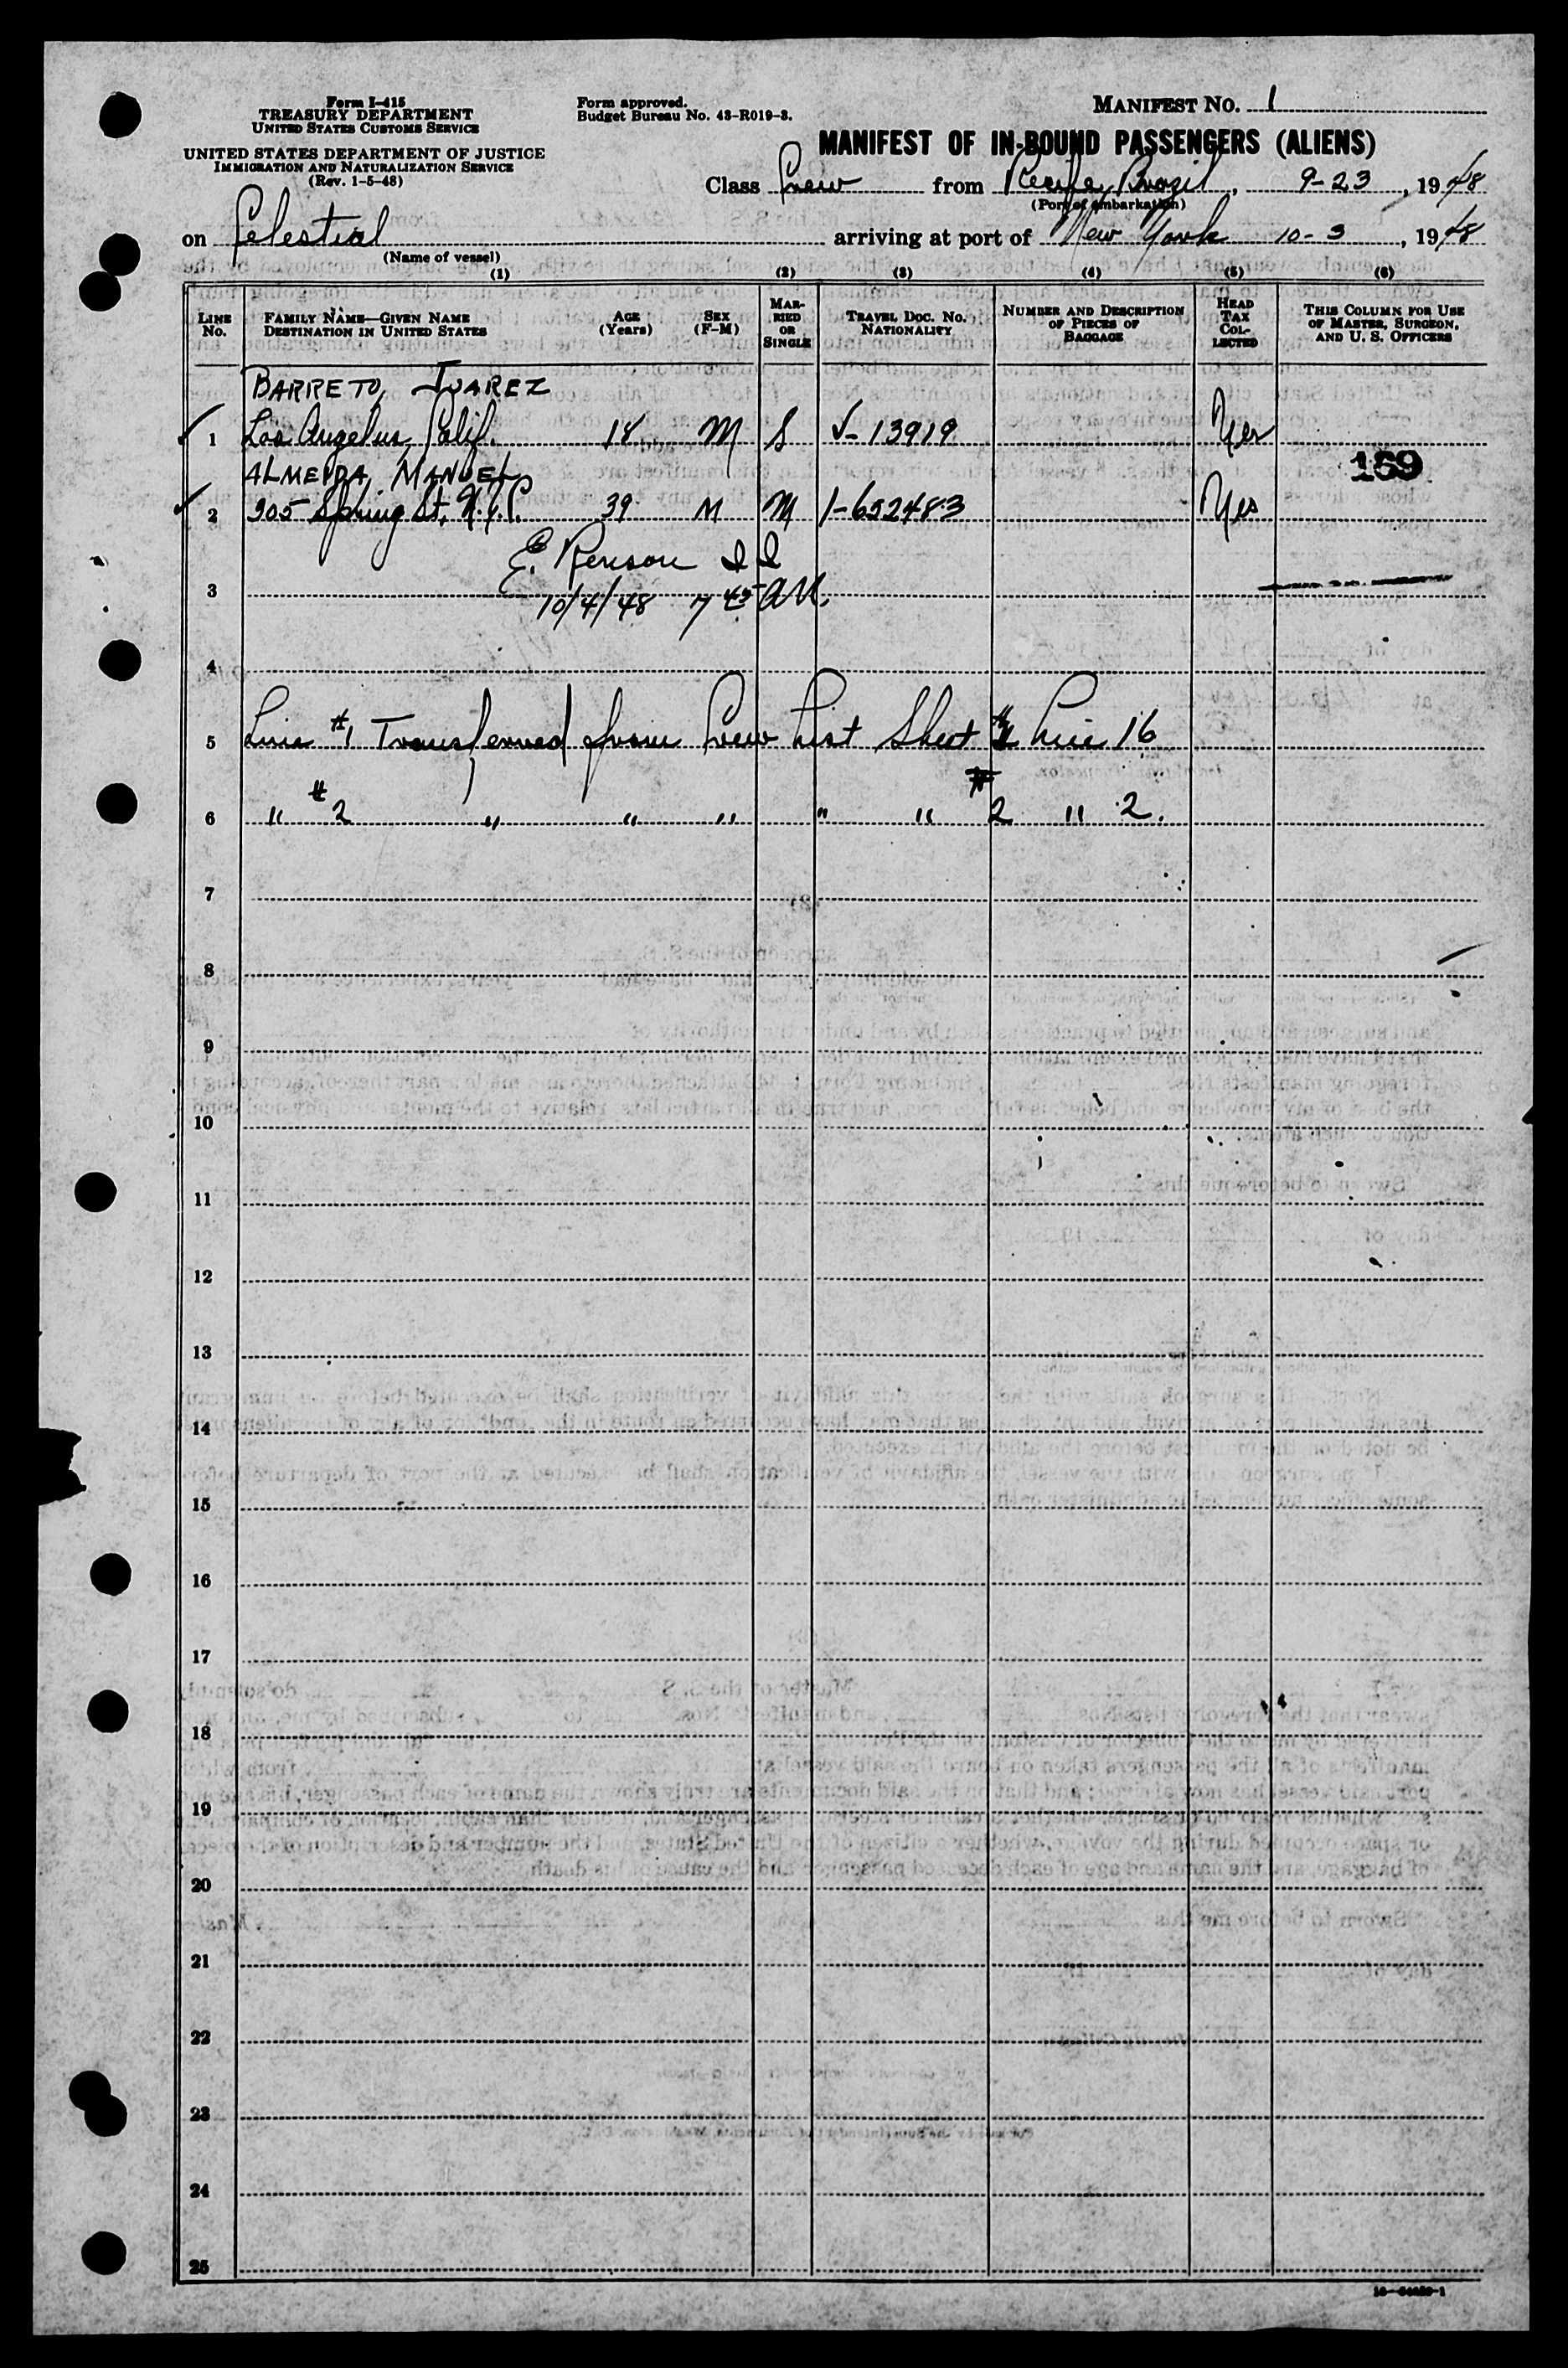 Form I-415
TREASURY DEPARTMENT
UNITED STATES CUSTOMS SERVICE
UNITED STATES DEPARTMENT OF JUSTICE
IMMIGRATION AND NATURALIZATION SERVICE
(Rev. 1-5-48)
Form approved.
Budget Bureau No. 43-R019-3.
MANIFEST NO. 1
MANIFEST OF IN-BOUND PASSENGERS (ALIENS)
Class Crew from Recife, Brazil, 9-23, 1948
(Port of embarkation)
on Celestial arriving at port of New York 10-3, 1948
(Name of vessel)
(1) (2) (3) (4) (5) (6)
LINE No. FAMILY NAME—GIVEN NAME DESTINATION IN UNITED STATES AGE (Years) SEX (F-M) MARRIED OR SINGLE TRAVEL DOC. NO. NATIONALITY NUMBER AND DESCRIPTION OF PIECES OF BAGGAGE HEAD TAX COLLECTED THIS COLUMN FOR USE OF MASTER, SURGEON, AND U. S. OFFICERS
BARRETO, JUAREZ
1 Los Angeles, Calif. 18 M S V-13919 Yes
ALMEIDA, MANUEL 169
2 305 Spring St, N.Y.C. 39 M M 1-652483 Yes
E. Renison I I
3 10/4/48 7 45 AM.
4
5 Line #1 Transferred from Crew List Sheet #1 Line 16
6 " #2 " " " " " #2 " 2.
7
8
9
10
11
12
13
14
15
16
17
18
19
20
21
22
23
24
25